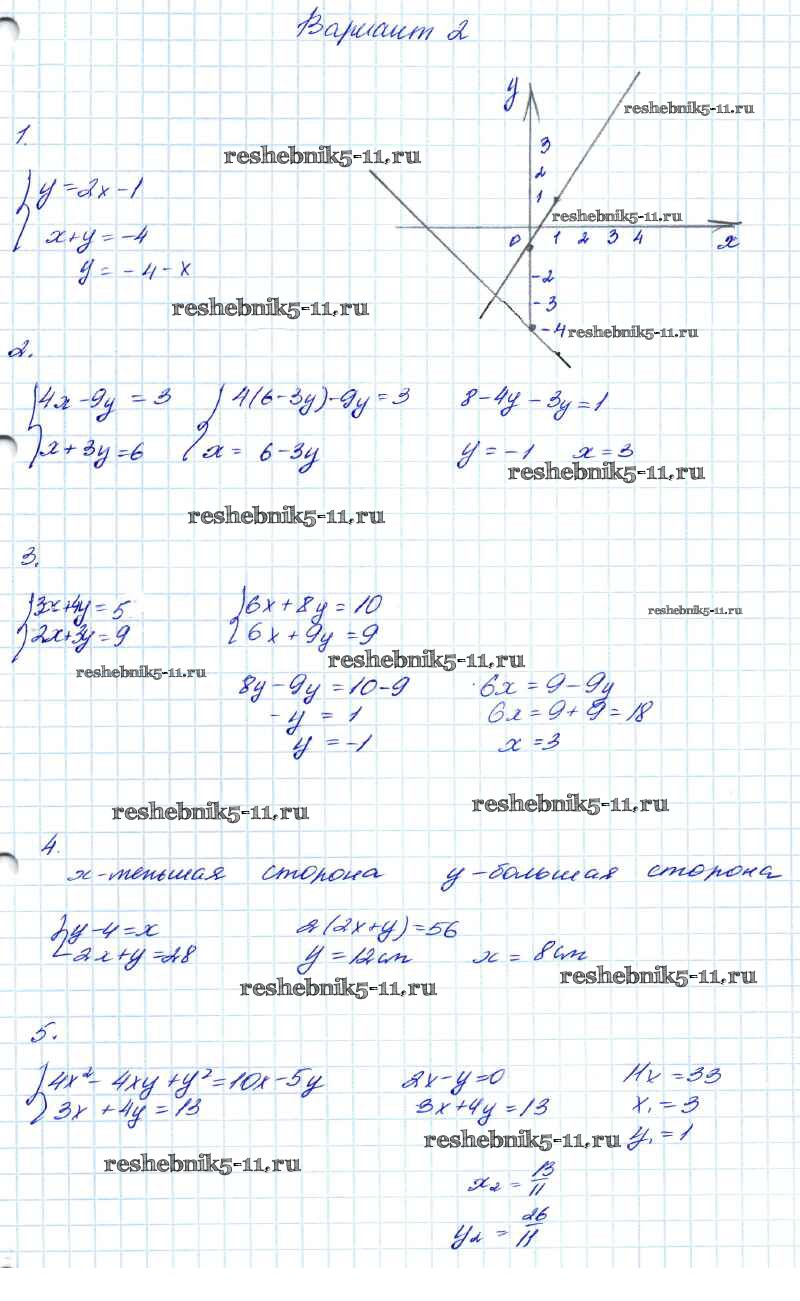 Вариант 2
1.
y = 2x - 1
x + y = -4
y = -4 - x
y
3
2
1
0 1 2 3 4 x
-2
-3
-4
reshebnik5-11.ru
reshebnik5-11.ru
reshebnik5-11.ru
reshebnik5-11.ru
reshebnik5-11.ru
2.
4x - 9y = 3 4(6-3y) - 9y = 3 8 - 4y - 3y = 1
x + 3y = 6 x = 6 - 3y y = -1 x = 3
reshebnik5-11.ru
reshebnik5-11.ru
3.
3x + 4y = 5 6x + 8y = 10
2x + 3y = 9 6x + 9y = 9
reshebnik5-11.ru
reshebnik5-11.ru
reshebnik5-11.ru
8y - 9y = 10 - 9 6x = 9 - 9y
-y = 1 6x = 9 + 9 = 18
y = -1 x = 3
reshebnik5-11.ru reshebnik5-11.ru
4.
x - меньшая сторона y - большая сторона
y - 4 = x 2(2x+y) = 56
2x + y = 28 y = 12 см x = 8 см
reshebnik5-11.ru reshebnik5-11.ru
5.
4x² - 4xy + y² = 10x - 5y 2x - y = 0 11x = 33
3x + 4y = 13 3x + 4y = 13 x₁ = 3
reshebnik5-11.ru y₁ = 1
reshebnik5-11.ru
x₂ = 13/11
y₂ = 26/11